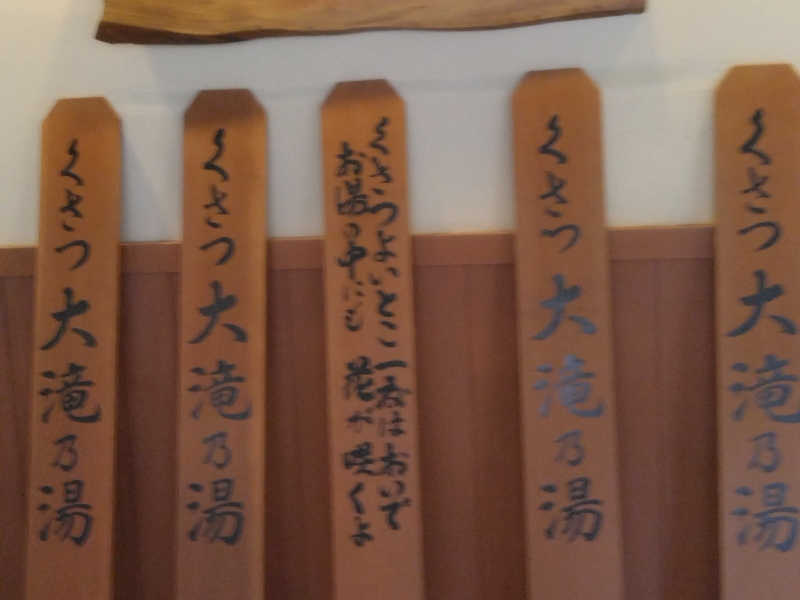 くさつ 大滝乃湯
くさつ 大滝乃湯
くさつよいとこ 一度はおいで
お湯の中にも 花が咲くよ
くさつ 大滝乃湯
くさつ 大滝乃湯